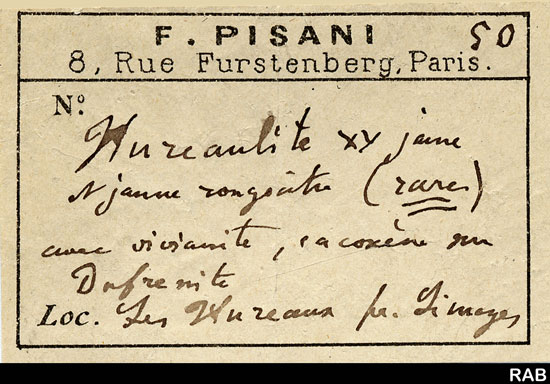 F. PISANI 50
8, Rue Furstenberg, Paris.
No.
Hureaulite XX jaune
& jaune rougeâtre (rares)
avec vivianite, cacoxène sur
Dufrenite
Loc. Les Hureaux pr. Limoges
RAB